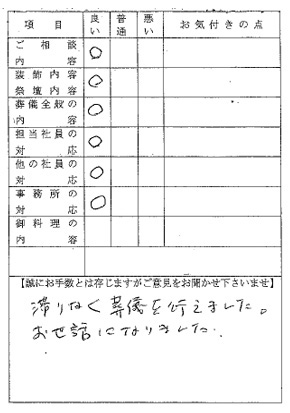 項目 良い 普通 悪い お気付きの点
ご相談内容 ○
装飾内容
祭壇内容 ○
葬儀全般の内容 ○
担当社員の対応 ○
他の社員の対応 ○
事務所の対応 ○
御料理の内容
【誠にお手数とは存じますがご意見をお聞かせ下さいませ】
滞りなく葬儀を行えました。
お世話になりました.